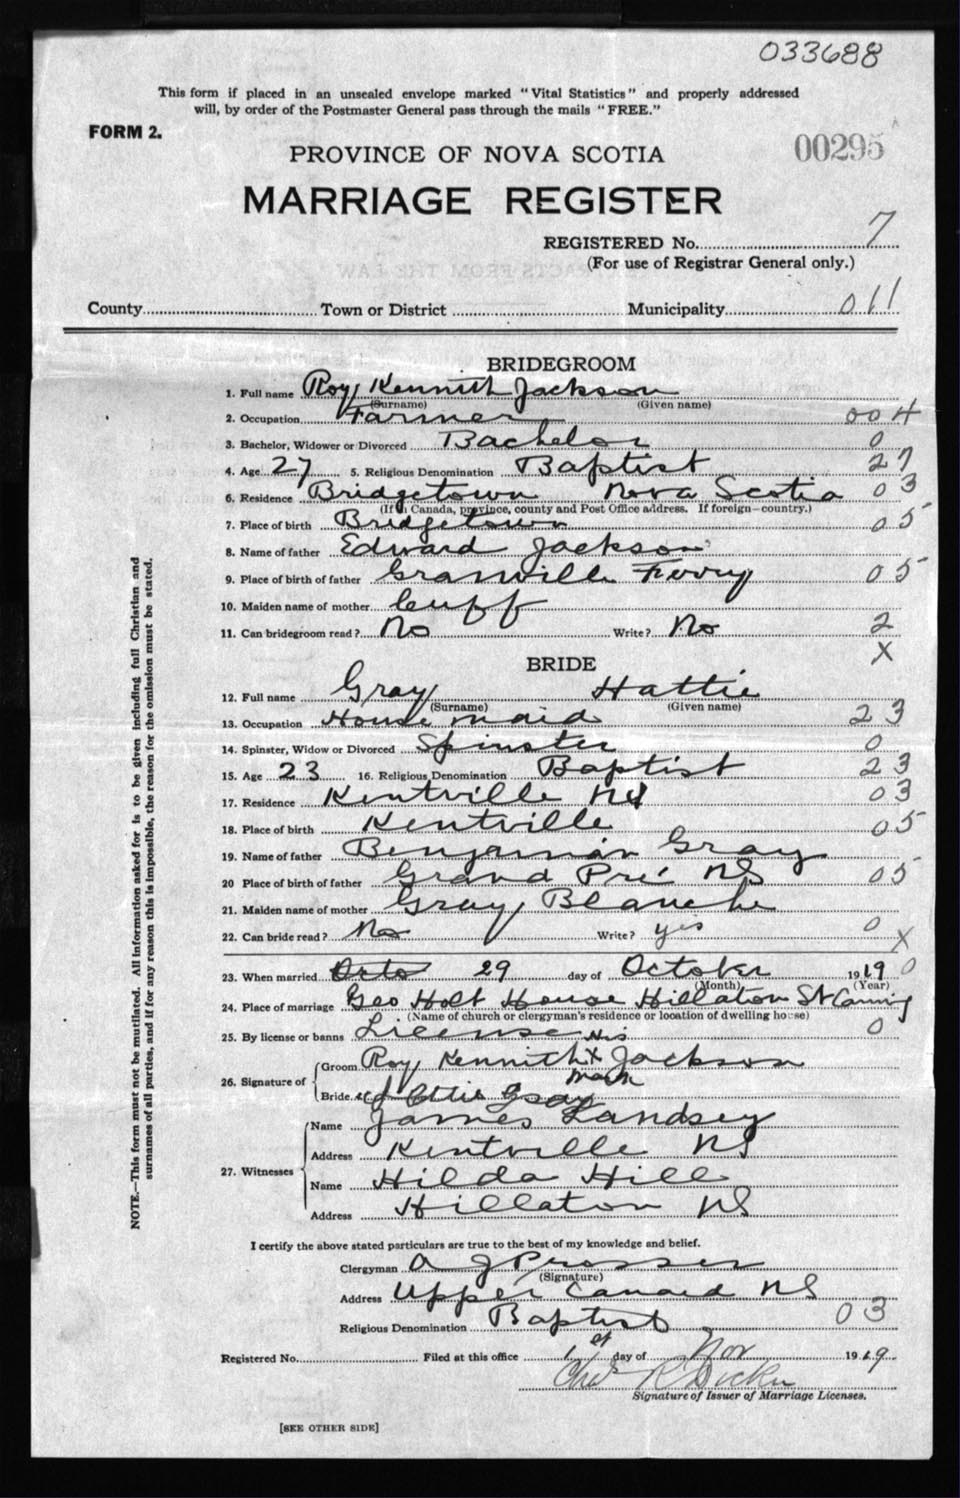 033688
This form if placed in an unsealed envelope marked "Vital Statistics" and properly addressed
will, by order of the Postmaster General pass through the mails "FREE."
FORM 2.
00295
PROVINCE OF NOVA SCOTIA
MARRIAGE REGISTER
REGISTERED No. 7
(For use of Registrar General only.)
County Town or District Municipality 011
BRIDEGROOM
1. Full name Roy Kennith Jackson
(Surname) (Given name)
2. Occupation Farmer 004
3. Bachelor, Widower or Divorced Bachelor 0
4. Age 27 5. Religious Denomination Baptist 27
6. Residence Bridgetown Nova Scotia 03
(If in Canada, province, county and Post Office address. If foreign—country.)
7. Place of birth Bridgetown 05
8. Name of father Edward Jackson
9. Place of birth of father Granville Ferry 05
10. Maiden name of mother Cuff
11. Can bridegroom read? No Write? No 2
X
BRIDE
12. Full name Gray Hattie
(Surname) (Given name)
13. Occupation House maid 23
14. Spinster, Widow or Divorced Spinster 0
15. Age 23 16. Religious Denomination Baptist 23
17. Residence Kentville NS 03
18. Place of birth Kentville 05
19. Name of father Benjamin Gray
20 Place of birth of father Grand Pré NS 05
21. Maiden name of mother Gray Blanche
22. Can bride read? No Write? yes 0
X
23. When married Octo 29 day of October 1919 0
(Month) (Year)
24. Place of marriage Geo Holt House Hillaton St Canning
(Name of church or clergyman's residence or location of dwelling house)
25. By license or banns License 0
his
26. Signature of Groom Roy Kennith X Jackson
mark
Bride Gray
27. Witnesses Name James Landsey
Address Kentville NS
Name Hilda Hill
Address Hillaton NS
I certify the above stated particulars are true to the best of my knowledge and belief.
Clergyman A J Prosser
(Signature)
Address Upper Canard NS
Religious Denomination Baptist 03
Registered No. Filed at this office 1st day of Nov 1919
Chas R Dickie
Signature of Issuer of Marriage Licenses.
[SEE OTHER SIDE]
NOTE.—This form must not be mutilated. All information asked for is to be given including full Christian and
surnames of all parties, and if for any reason this is impossible, the reason for the omission must be stated.